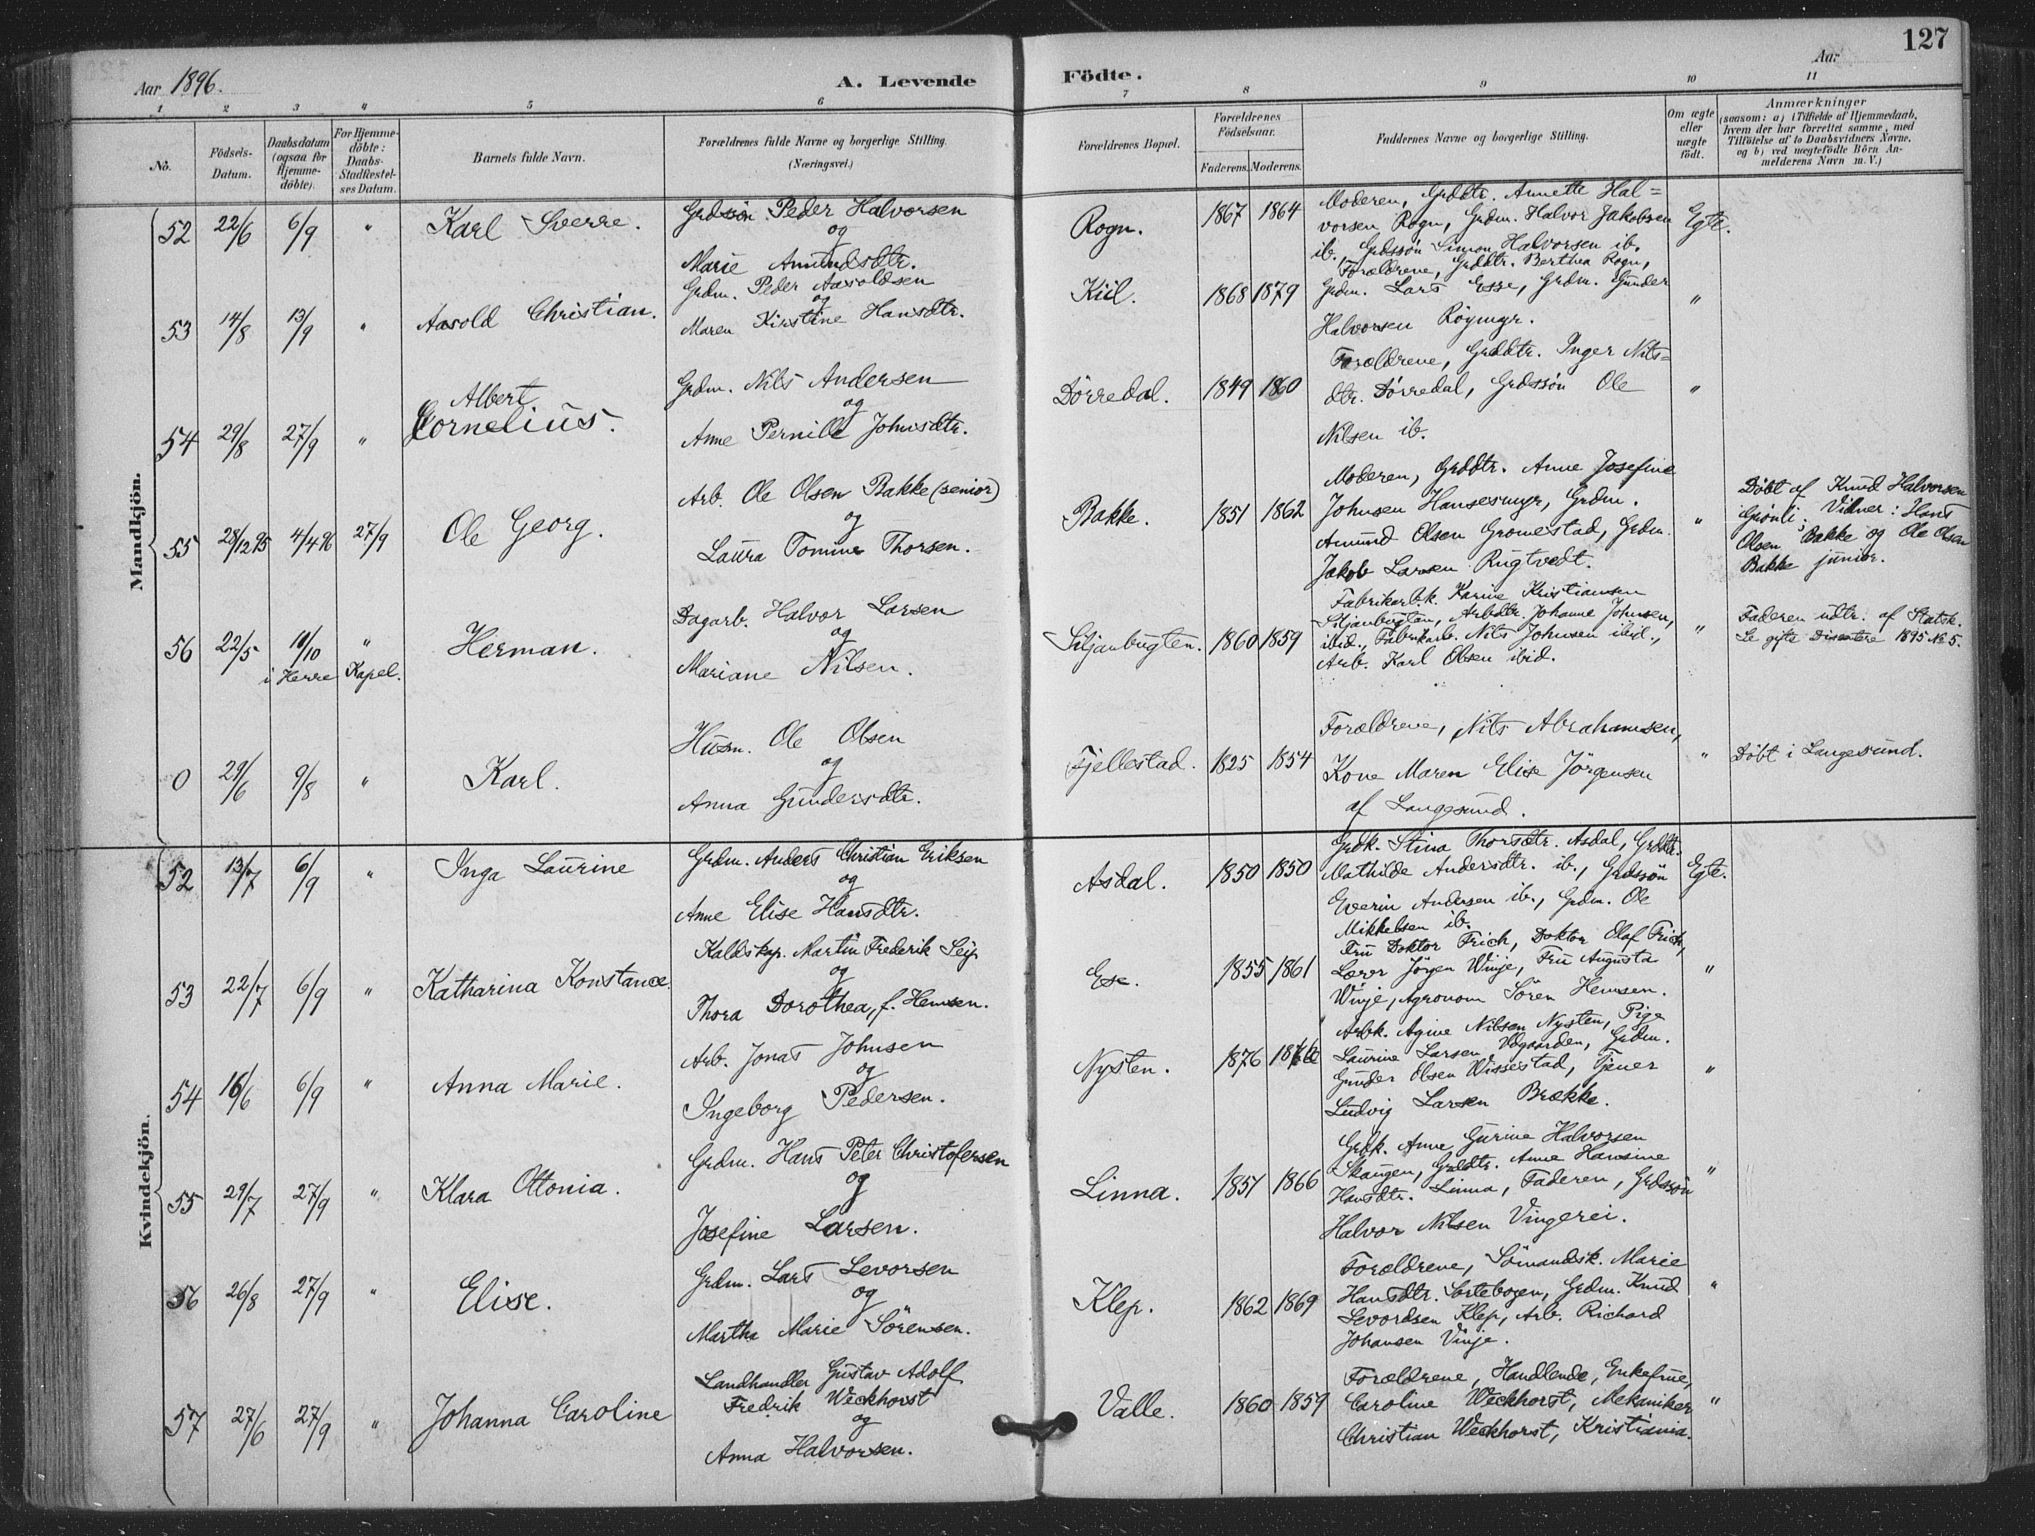 Aar 1896.
A. Levende
Födte.
Aar
127
1 2 3 " 5 6 7 8 9 10 11
No.
Födsels-Datum.
Daabsdatum (ogsaa for Hjemme-döbte).
For Hjemme-döbte: Daabs-Stadfæstel-ses Datum.
Barnets fulde Navn.
Forældrenes fulde Navne og borgerlige Stilling. (Næringsvei.)
Forældrenes Bopæl.
Forældrenes Födselsaar.
Faderens. Moderens.
Faddernes Navne og borgerlige Stilling.
Om ægte eller uægte födt.
Anmærkninger (saasom: a) i Tilfælde af Hjemmedaab, hvem der har forrettet samme, med Tilföielse af to Daabsvidners Navne, og b) ved uægtefödte Börn An-melderens Navn m. V.)
Mandkjön.
52 22/6 6/9 " Karl Sverre.
Grdssön Peder Halvorsen
og
Marie Amundsdtr.
Rogn. 1867 1864
Moderen, Grddtr. Annette Hal=
vorsen Rogn, Grdm. Halvor Jakobsen
ib., Grdssön Simon Halvorsen ib.
Egte.
53 14/8 13/9 " Aasold Christian.
Grdm. Peder Aasoldsen
og
Maren Kirstine Hansdtr.
Kiil. 1868 1879
Forældrene, Grddtr. Berthea Rogn,
Grdm. Lars Esse, Grdm. Gunder
Halvorsen Röymyr.
"
54 29/8 27/9 " Albert
Cornelius.
Grdm. Nils Andersen
og
Anne Pernille Johnsdtr.
Dörredal. 1849 1860
Forældrene, Grddtr. Inger Nils=
dtr. Dörredal, Grdssön Ole
Nilsen ib.
"
55 28/12 95 4/4 96 27/9 Ole Georg.
Arb. Ole Olsen Bakke (senior)
og
Laura Tomine Thorsen.
Bakke. 1851 1862
Moderen, Grddtr. Anne Josefine
Johnsen Hansesmyr, Grdm.
Amund Olsen Gromestad, Grdm.
Jakob Larsen Rugtvedt.
"
Döbt af Knud Halvorsen
Grönli; Vidner: Hans
Olsen Bakke og Ole Olsen
Bakke junior.
56 22/5 10/10 "
i Herre Kapel.
Herman.
Dagarb. Halvor Larsen
og
Mariane Nilsen.
Siljanbugten. 1860 1859
Fabrikarb.k. Karine Kristiansen
Siljanbugten, Arbdtr. Johanne Johnsen,
ibid., Fabrikarb. Nils Johnsen ibid.,
Arb. Karl Olsen ibid.
"
Faderen udtr. af Statsk.
Se gifte Dissentere 1895 No 5.
0 29/6 9/8 " Karl.
Husm. Ole Olsen
og
Anna Gundersdtr.
Fjellestad. 1825 1854
Forældrene, Nils Abrahamsen,
Kone Maren Elise Jörgensen
af Langesund.
"
Döbt i Langesund.
Kvindekjön.
52 13/7 6/9 " Inga Laurine
Grdm. Anders Christian Eriksen
og
Anne Elise Hansdtr.
Asdal. 1850 1850
Grdk. Stina Thorsdtr. Asdal, Grddtr.
Mathilde Andersdtr. ib., Grdssön
Everin Andersen ib., Grdm. Ole
Mikkelsen ib.
Egte.
53 22/7 6/9 " Katharina Konstance.
Kaldskap. Martin Frederik Seip
og
Thora Dorothea, f. Hemsen.
Ese. 1855 1861
Fru Doktor Frich, Doktor Olaf Frich,
Lærer Jörgen Winje, Fru Augusta
Winje, Agronom Sören Hemsen.
"
54 16/6 6/9 " Anna Marie.
Arb. Jonas Johnsen
og
Ingeborg Pedersen.
Nysten. 1876
Arbk. Agine Nilsen Nysten, Pige
Laurine Larsen Vögaarden, Grdm.
Gunder Olsen Wissestad, Tjener
Ludvig Larsen Brække.
"
55 29/7 27/9 " Klara Ottonia.
Grdm. Hans Peter Christofersen
og
Josefine Larsen.
Linna. 1851 1866
Grdk. Anne Gurine Halvorsen
Skaugen, Grddtr. Anne Hansine
Hansdtr. Linna, Faderen, Grdssön
Halvor Nilsen Vingerei.
"
56 26/8 27/9 " Elise.
Grdm. Lars Levorsen
og
Martha Marie Sörensen.
Klep. 1862 1869
Forældrene, Sömandsk. Marie
Hansdtr. Sortebogen, Grdm. Knud
Levordsen Klep, Arb. Richard
Johansen Vinje.
"
57 27/6 27/9 " Johanna Caroline
Landhandler Gustav Adolf
Fredrik Weckhorst
og
Anna Halvorsen.
Valle. 1860 1859
Forældrene, Handlende, Enkefrue,
Caroline Weckhorst, Mekaniker
Christian Weckhorst, Kristiania.
"